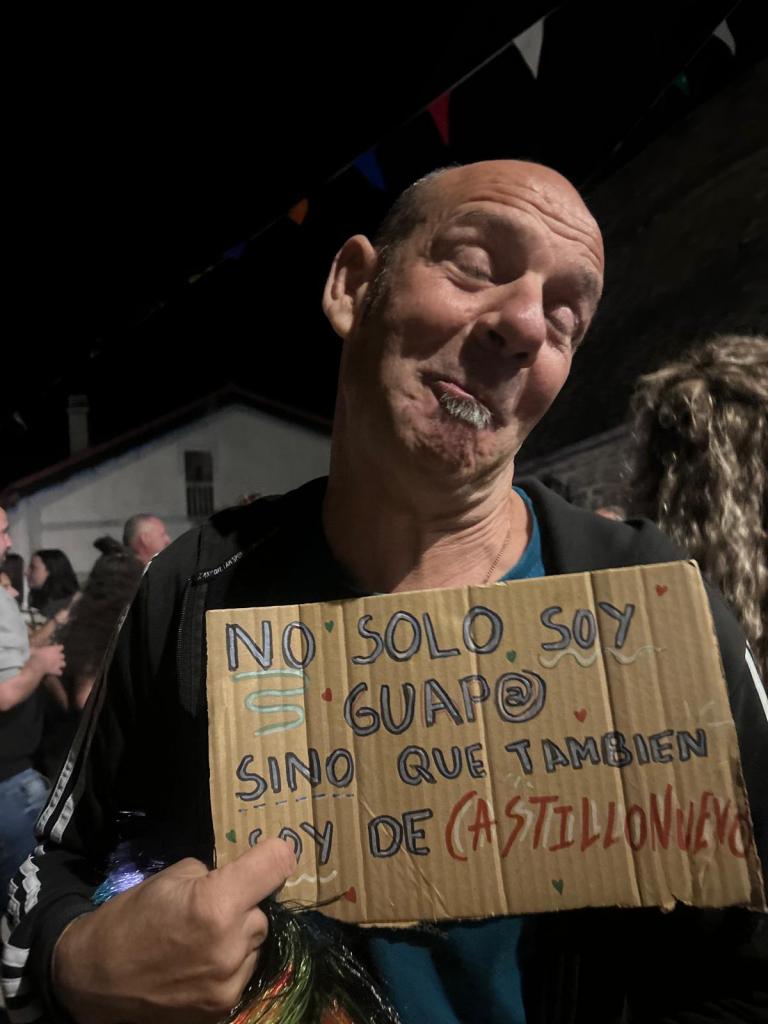 NO SOLO SOY
GUAP@
SINO QUE TAMBIEN
SOY DE CASTILLONUEVO